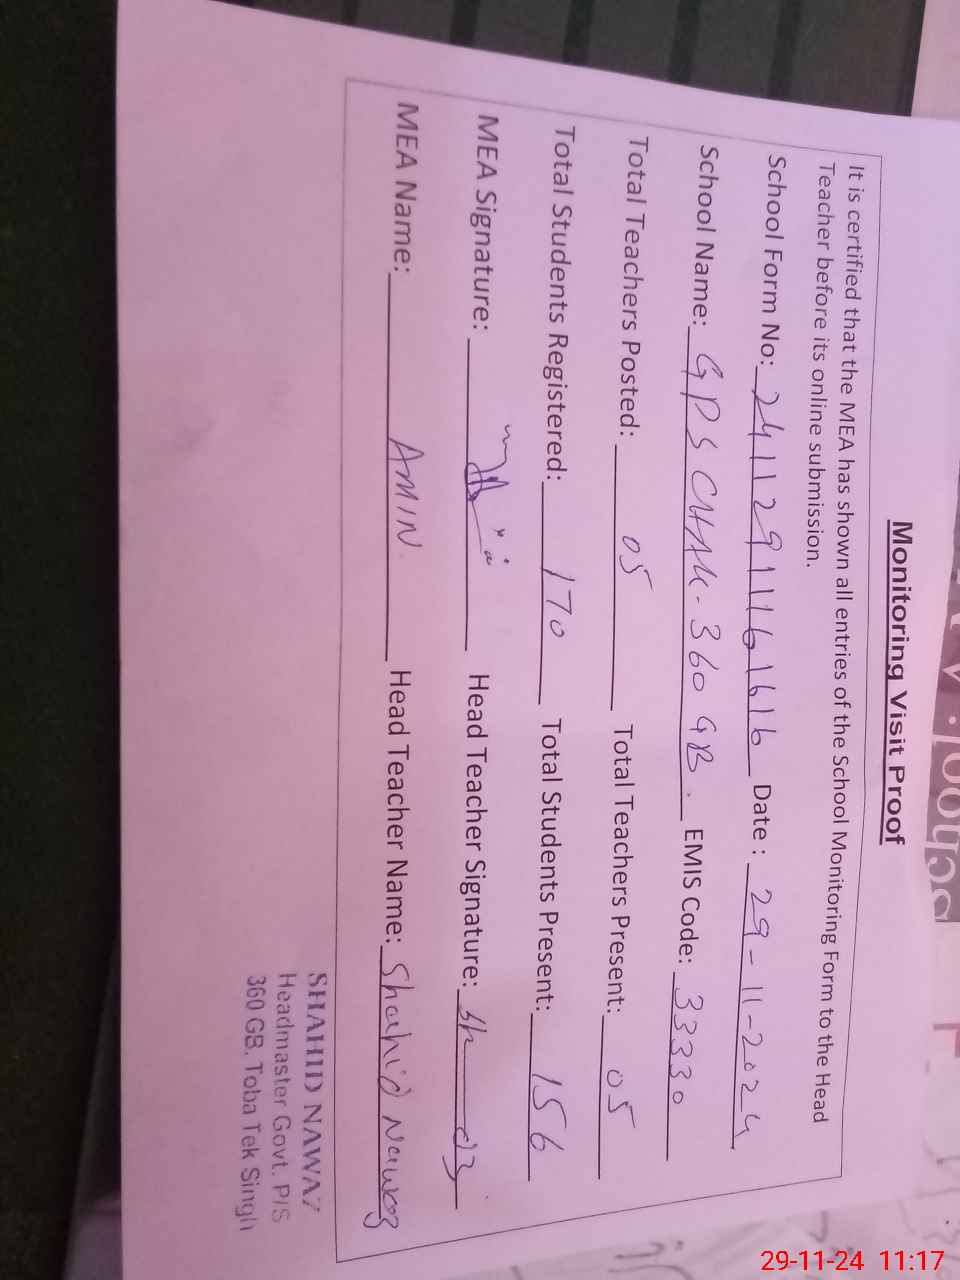 Monitoring Visit Proof
It is certified that the MEA has shown all entries of the School Monitoring Form to the Head
Teacher before its online submission.
School Form No: 24112911161616 Date : 29-11-2024
School Name: GPS CHAK-360 GB. EMIS Code: 33330
Total Teachers Posted: 05 Total Teachers Present: 05
Total Students Registered: 170 Total Students Present: 156
MEA Signature: Head Teacher Signature:
MEA Name: AMIN Head Teacher Name: Shahid Nawaz
SHAHID NAWAZ
Headmaster Govt. P/S
360 GB. Toba Tek Singh
29-11-24 11:17